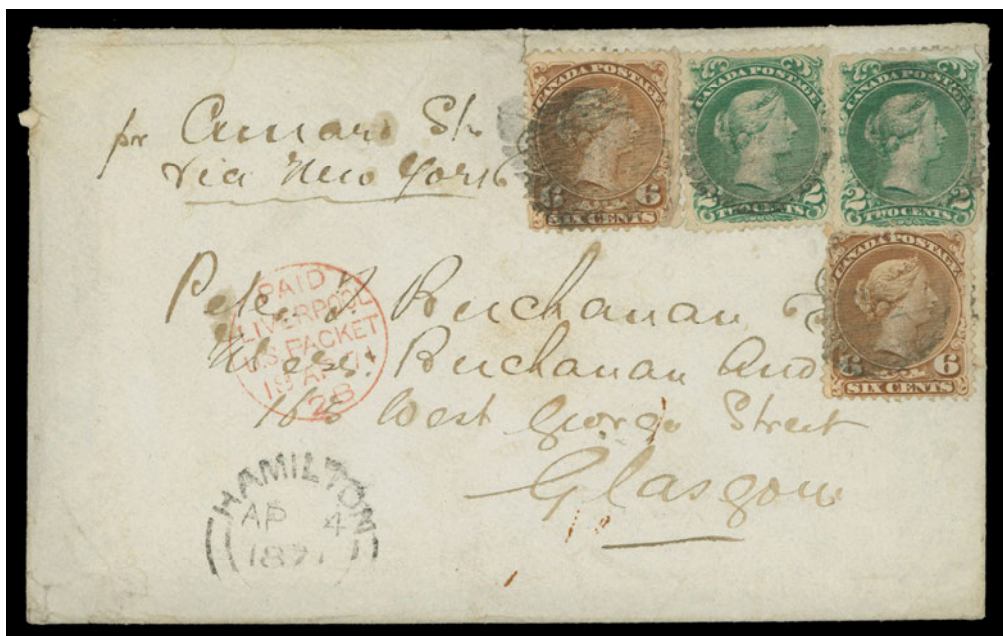 pr Cunard Str
via New York
CANADA POSTAGE
6 6
SIX CENTS
CANADA POSTAGE
2 2
TWO CENTS
CANADA POSTAGE
2 2
TWO CENTS
CANADA POSTAGE
6 6
SIX CENTS
Peter Buchanan
Messrs. Buchanan
West George Street
Glasgow
PAID
LIVERPOOL
U.S. PACKET
AP 71
28
HAMILTON
AP 4
1871